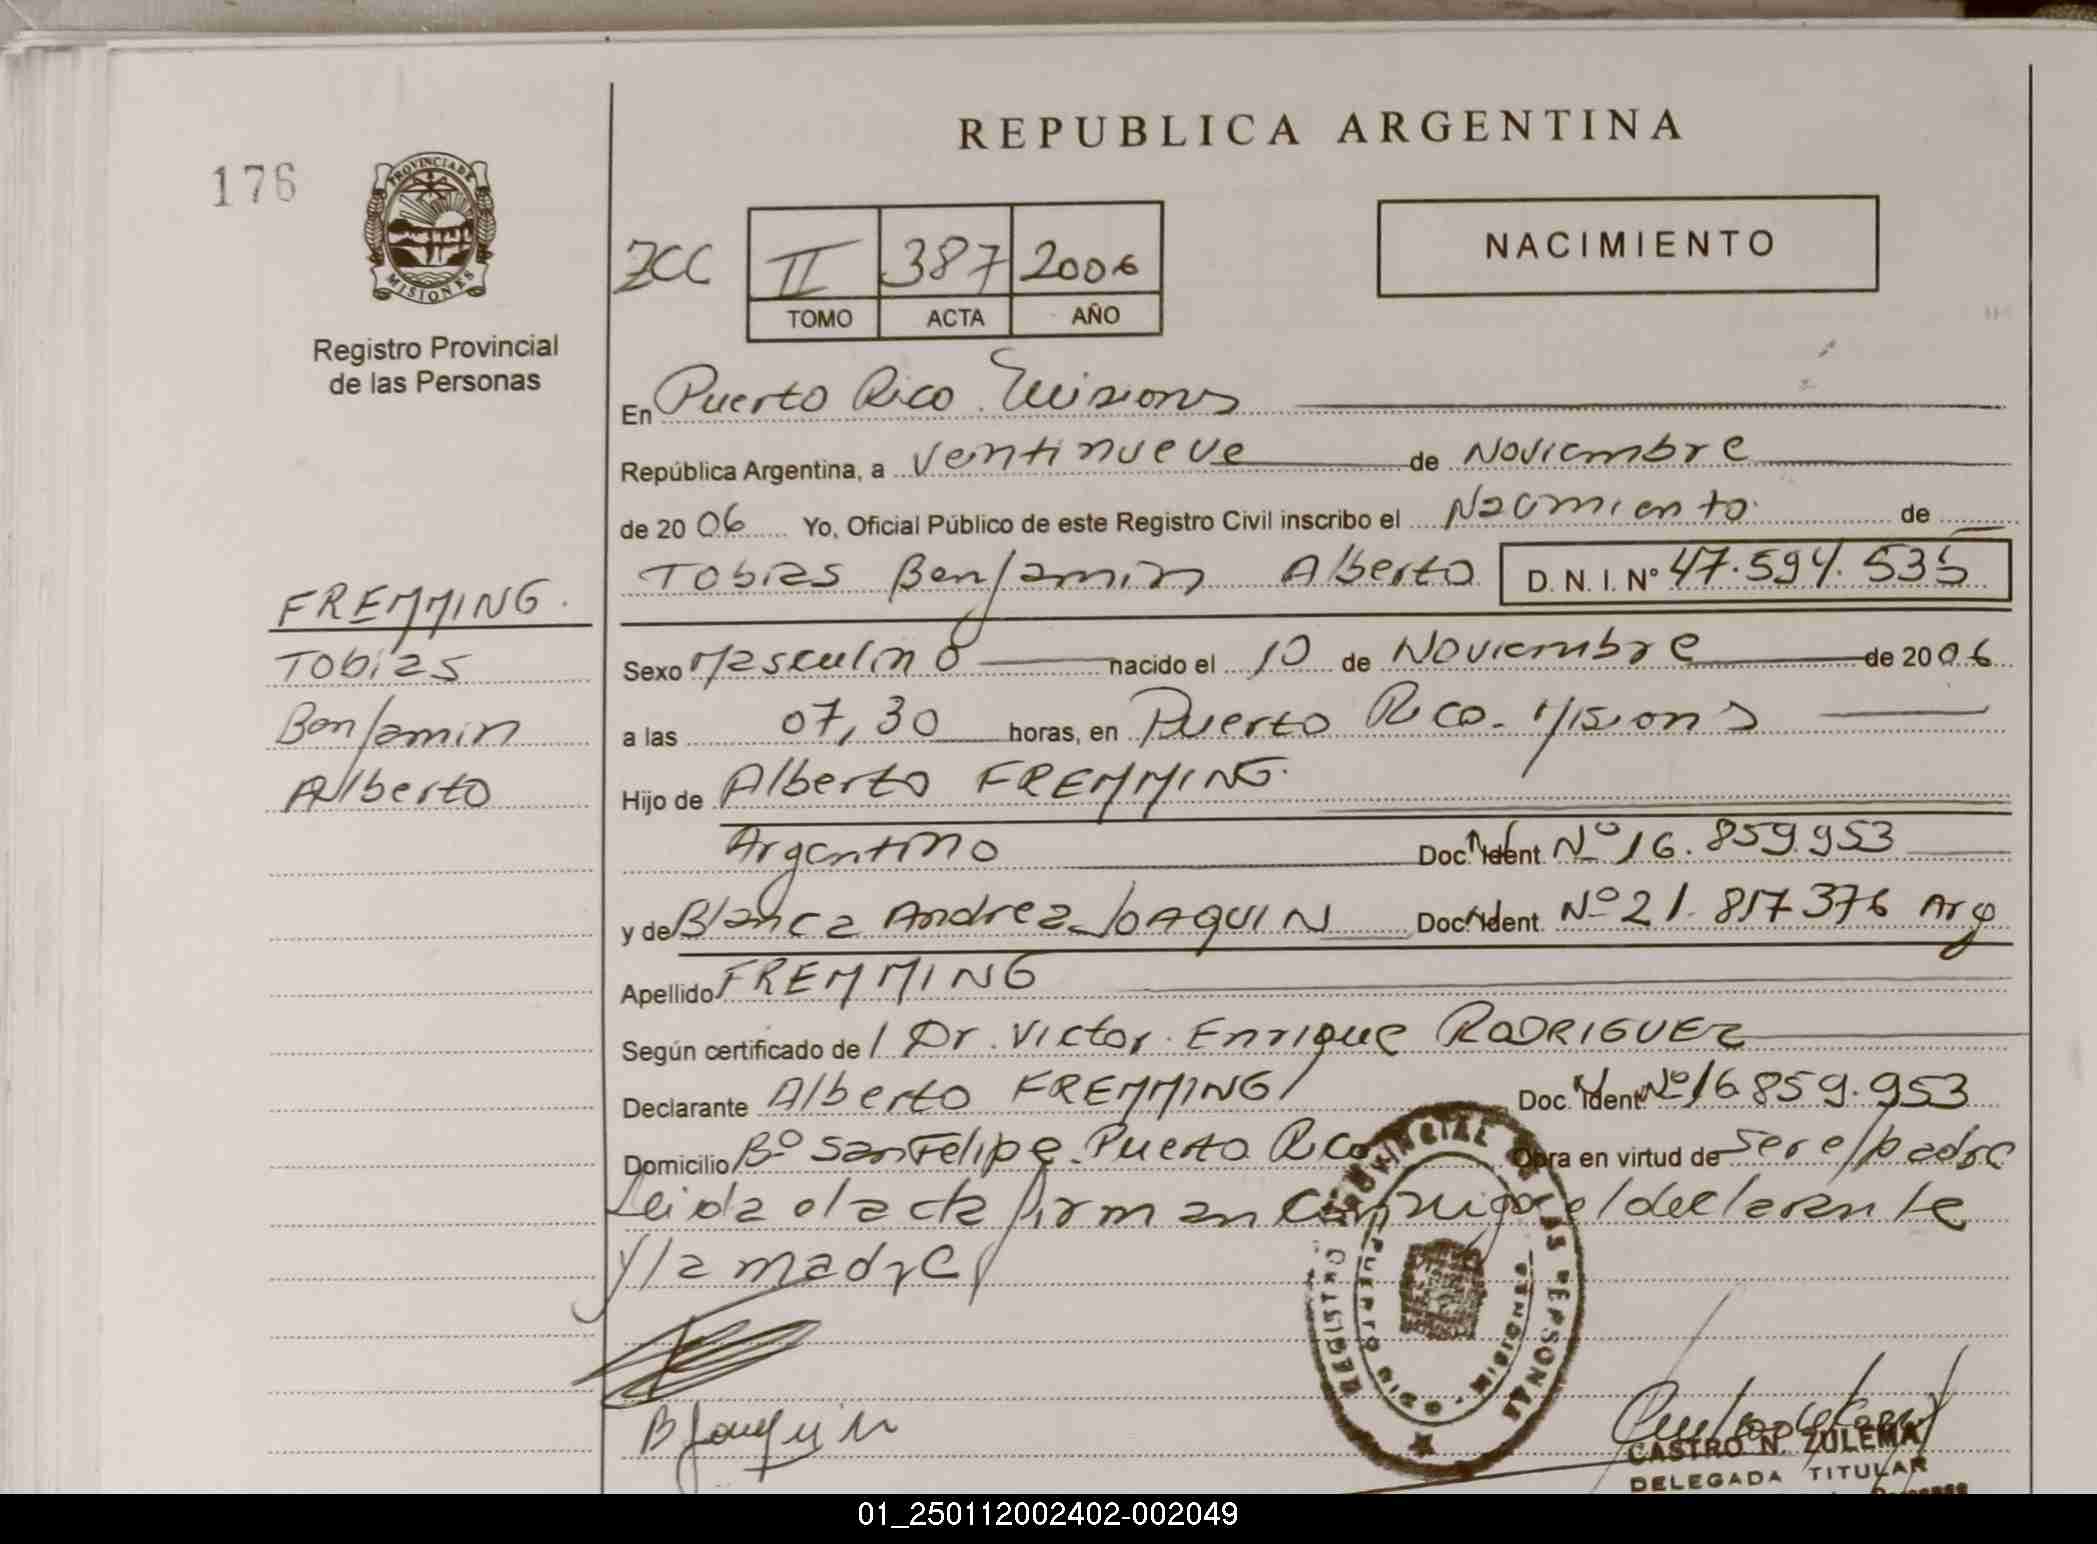 REPUBLICA ARGENTINA
176
PROVINCIA DE
MISIONES
Registro Provincial
de las Personas
ZCC
II 387 2006
TOMO ACTA AÑO
NACIMIENTO
En Puerto Rico Misiones
República Argentina, a Ventinueve de Noviembre
de 20 06 Yo, Oficial Público de este Registro Civil inscribo el Nacimiento de
Tobias Benjamin Alberto D. N. I. Nº 47.594.535
FREMMING.
Tobias
Benjamin
Alberto
Sexo Masculino nacido el 10 de Noviembre de 2006
a las 07,30 horas, en Puerto Rico. Misiones
Hijo de Alberto FREMMING.
Argentino Doc. Ident Nº 16.859.953
y de Blanca Andrea JOAQUIN Doc. Ident Nº 21.817376 Arg
Apellido FREMMING
Según certificado de Dr. Victor Enrique RODRIGUEZ
Declarante Alberto FREMMING Doc. Ident Nº 16859.953
Domicilio Bº San Felipe. Puerto Rico Obra en virtud de Ser el padre
Leida el acta firman conmigo el declarante
y la madre
REGISTRO PROVINCIAL DE LAS PERSONAS
PUERTO RICO
B Joaquin
CASTRO N. ZULEMA
DELEGADA TITULAR
01_250112002402-002049